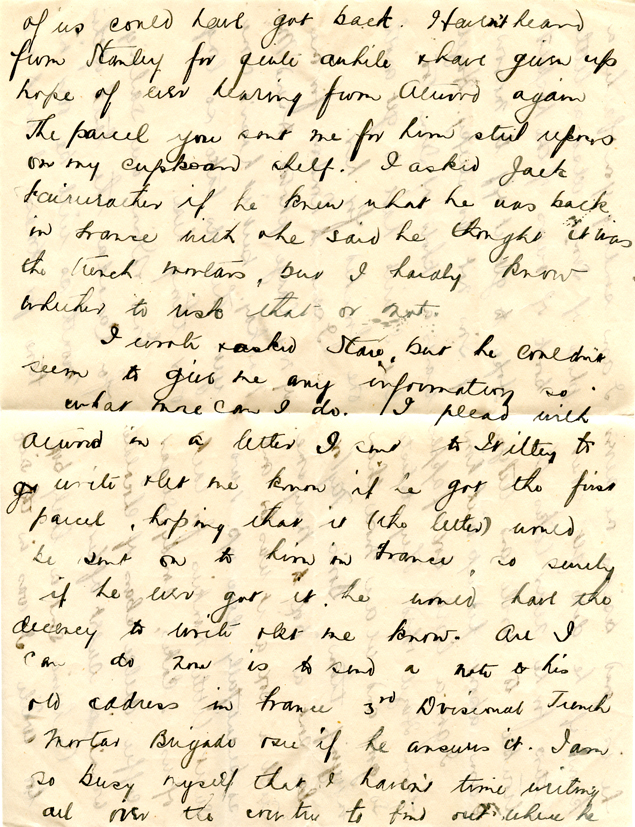 of us could have got back. Haven't heard
from Stanley for quite awhile & have given up
hope of ever hearing from Alword again
The parcel you sent me for him still reposes
on my cupboard shelf. I asked Jack
Fairweather if he knew what he was back
in France with & he said he thought it was
the trench mortars, but I hardly know
whether to risk that or not.
I wrote & asked Stan, but he couldn't
seem to give me any information so
what more can I do. I plead with
Alword in a letter I sent to Witley to
write & let me know if he got the first
parcel, hoping that it (the letter) would
be sent on to him in France, so surely
if he ever got it he would have the
decency to write & let me know. All I
can do now is to send a note to his
old address in France 3rd Divisional Trench
Mortar Brigade & see if he answers it. I am
so busy myself that I haven't time writing
all over the country to find out where he